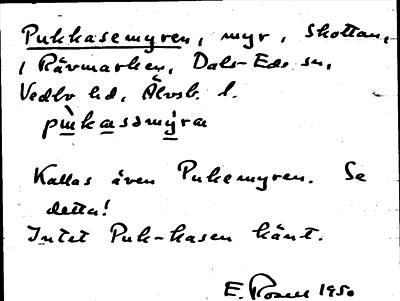 Pukkasemyren, myr, Skottan,
i Rävmarken, Dals-Eds sn,
Vedbo hd, Älvsb. l.
pu̱̇ka̱səmý̱ra
Kallas även Pukemyren. Se
detta!
Intet Puk-kasen känt.
E. Rosell 1950